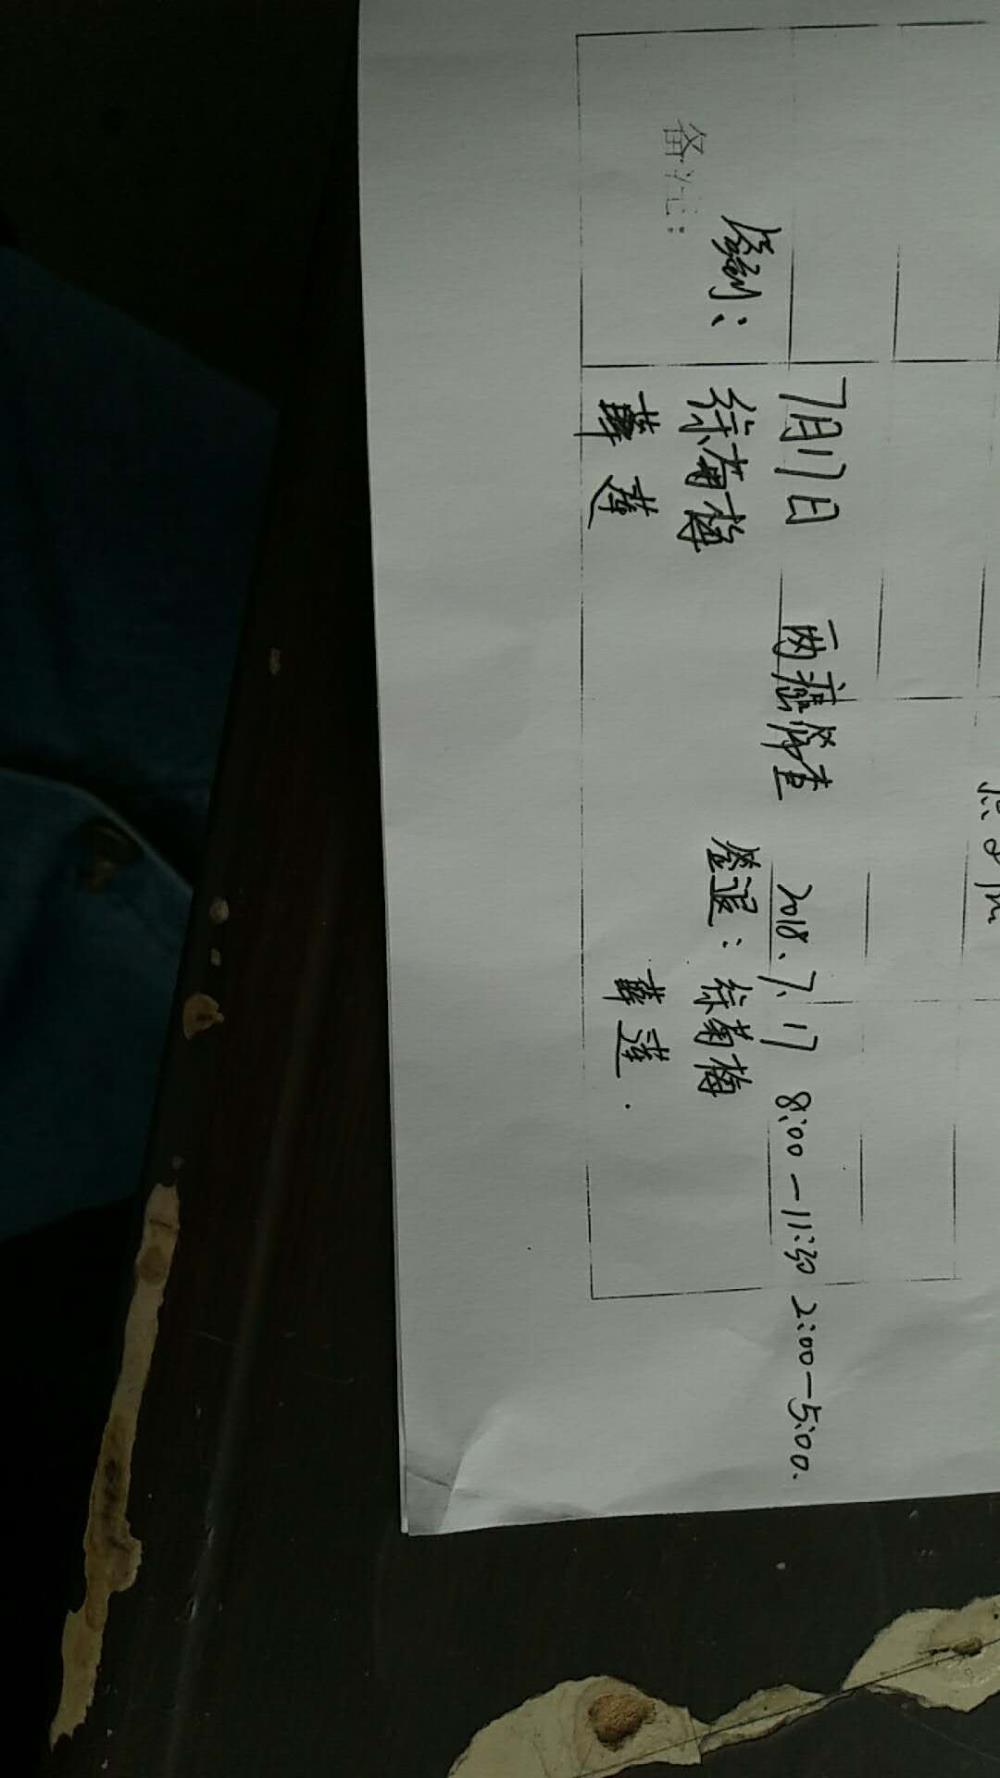 7月17日 两癌筛查 2018.7.17 8:00—11:30 2:00—5:00.
签到: 徐菊梅 签退: 徐菊梅
备注: